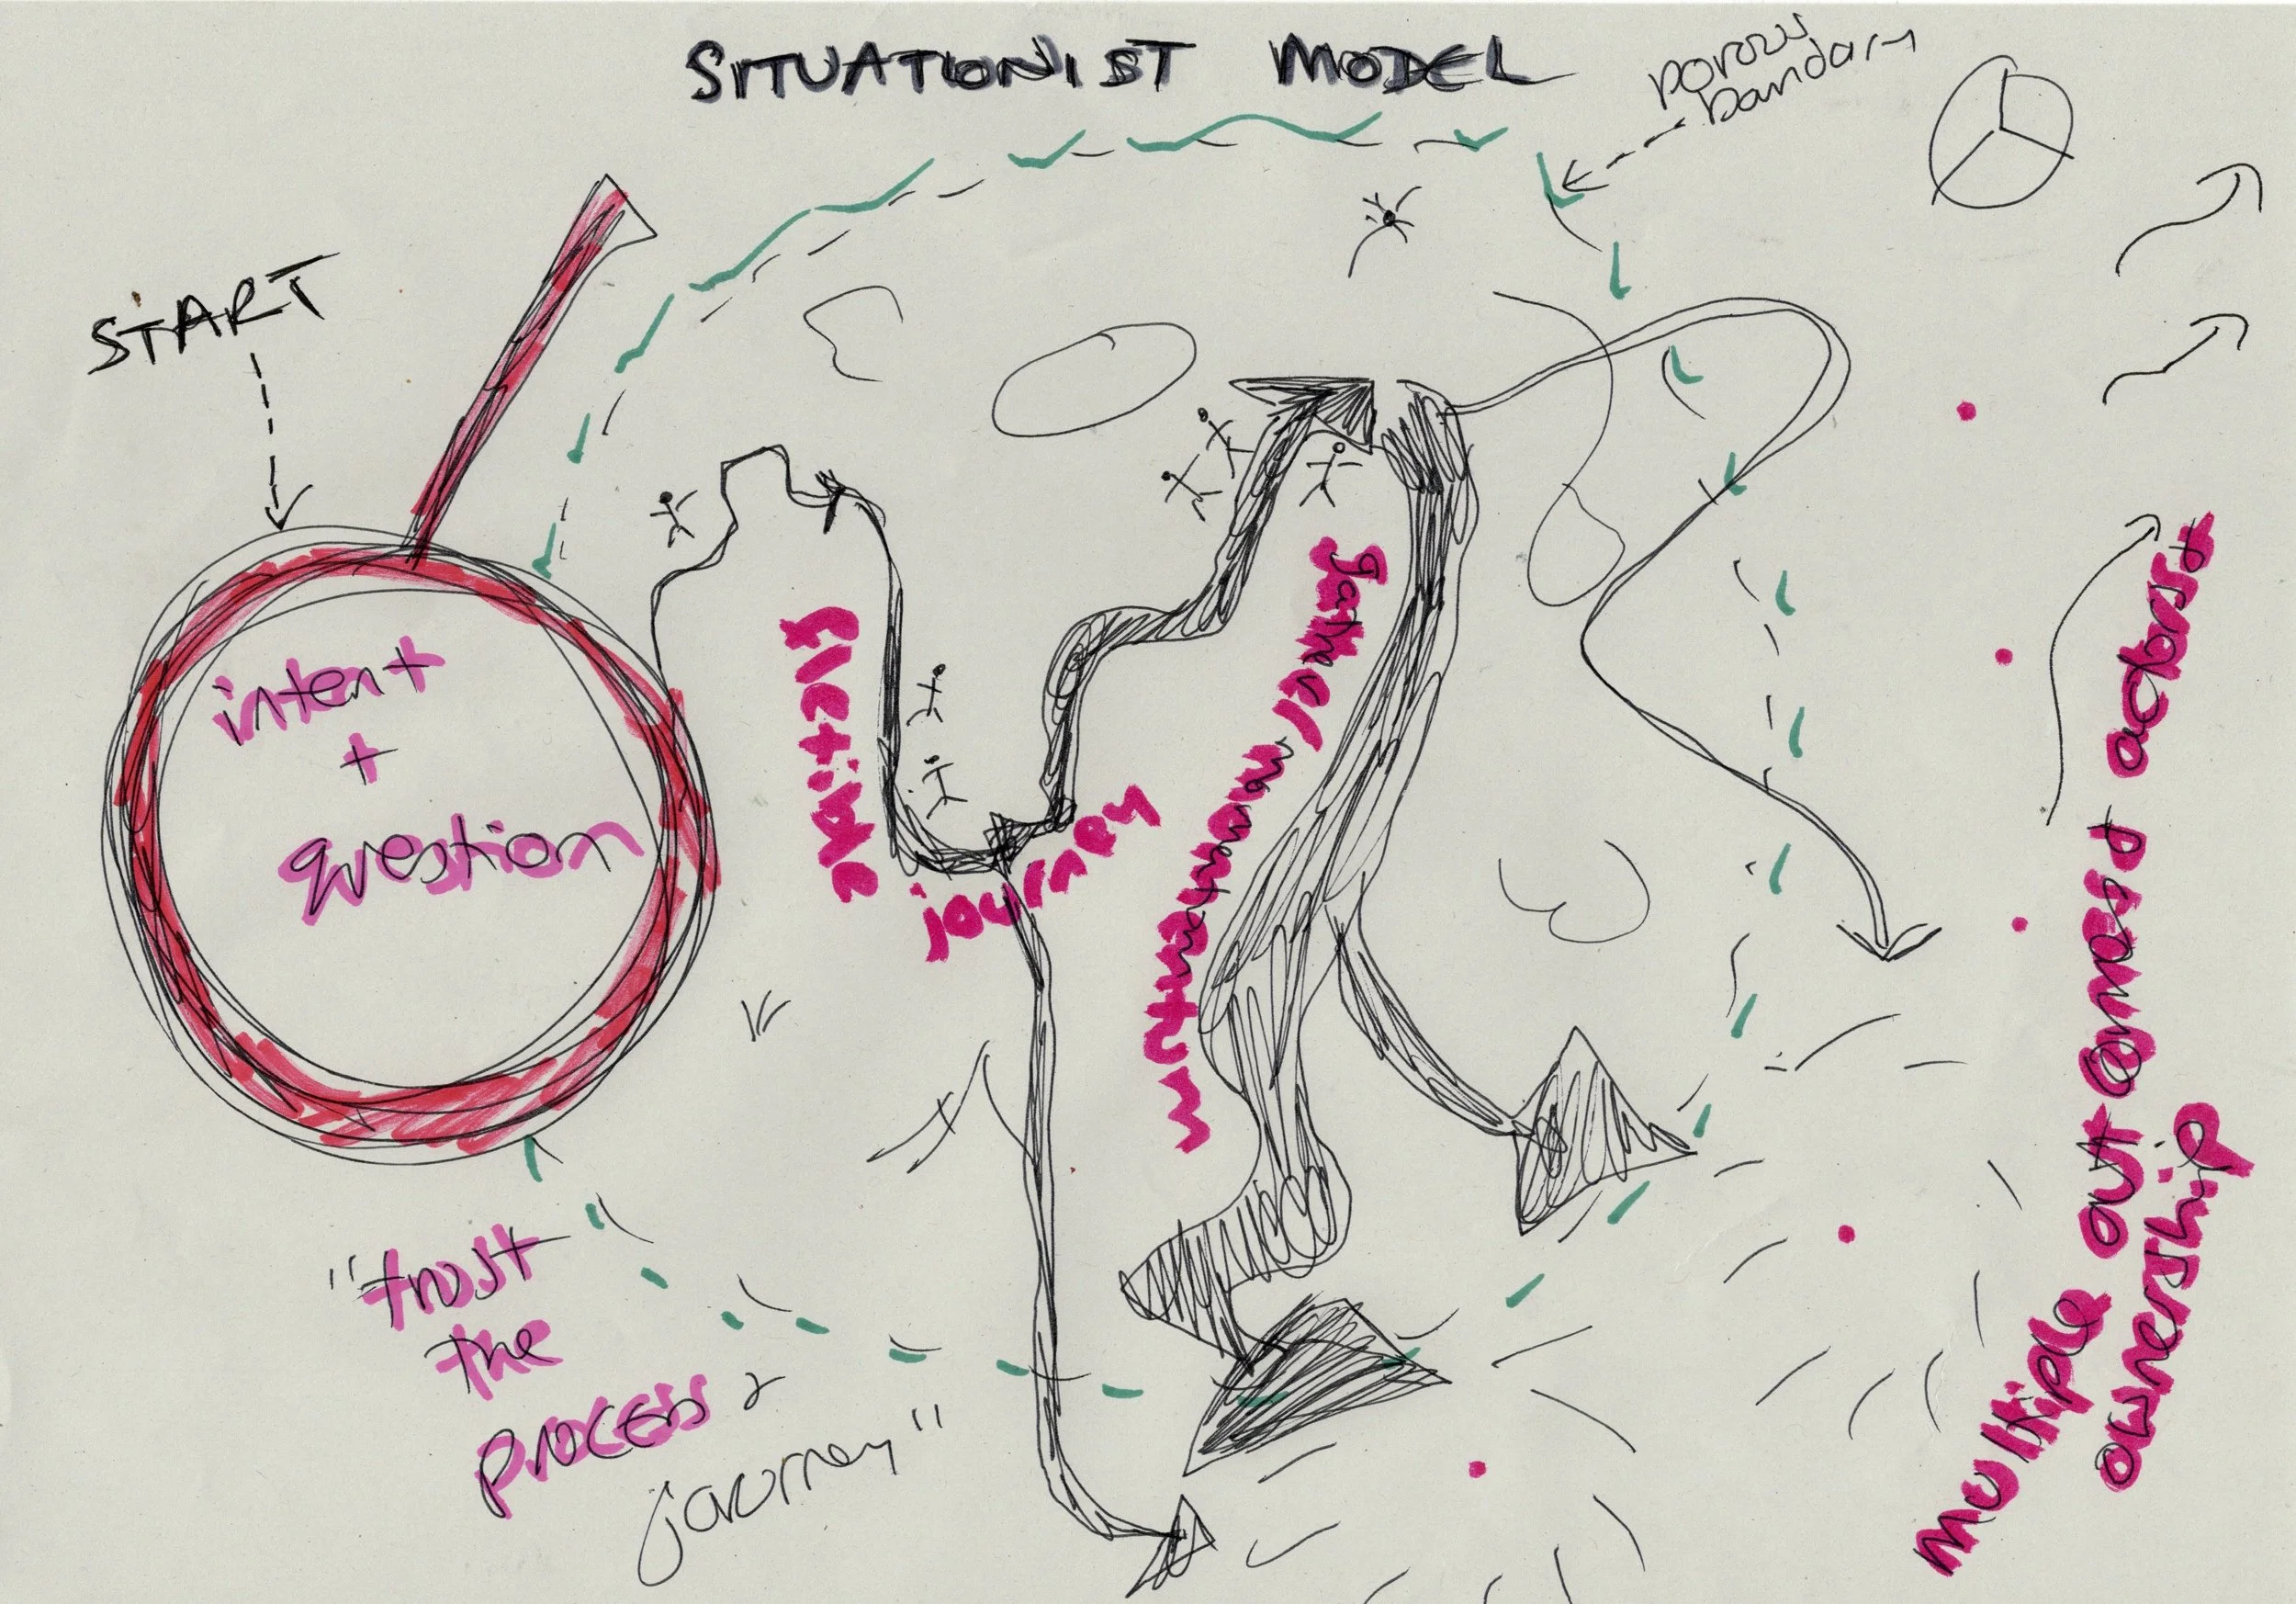 SITUATIONIST MODEL
porous
bandary
START
intent
+
question
journey
gather momentum
"trust
the
process &
journey"
multiple outcomes + actors +
ownership